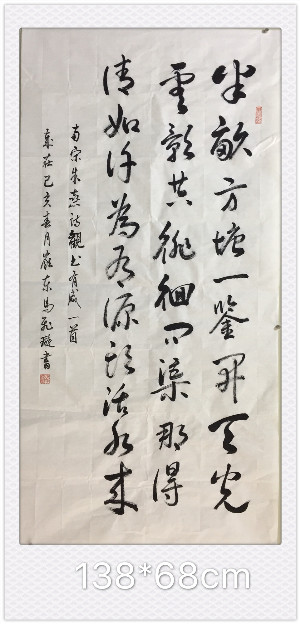 半畝方塘一鑒開天光
雲影共徘徊問渠那得
清如許為有源頭活水來
南宋朱熹詩觀書有感一首
歲在己亥春月東馬書
138*68cm